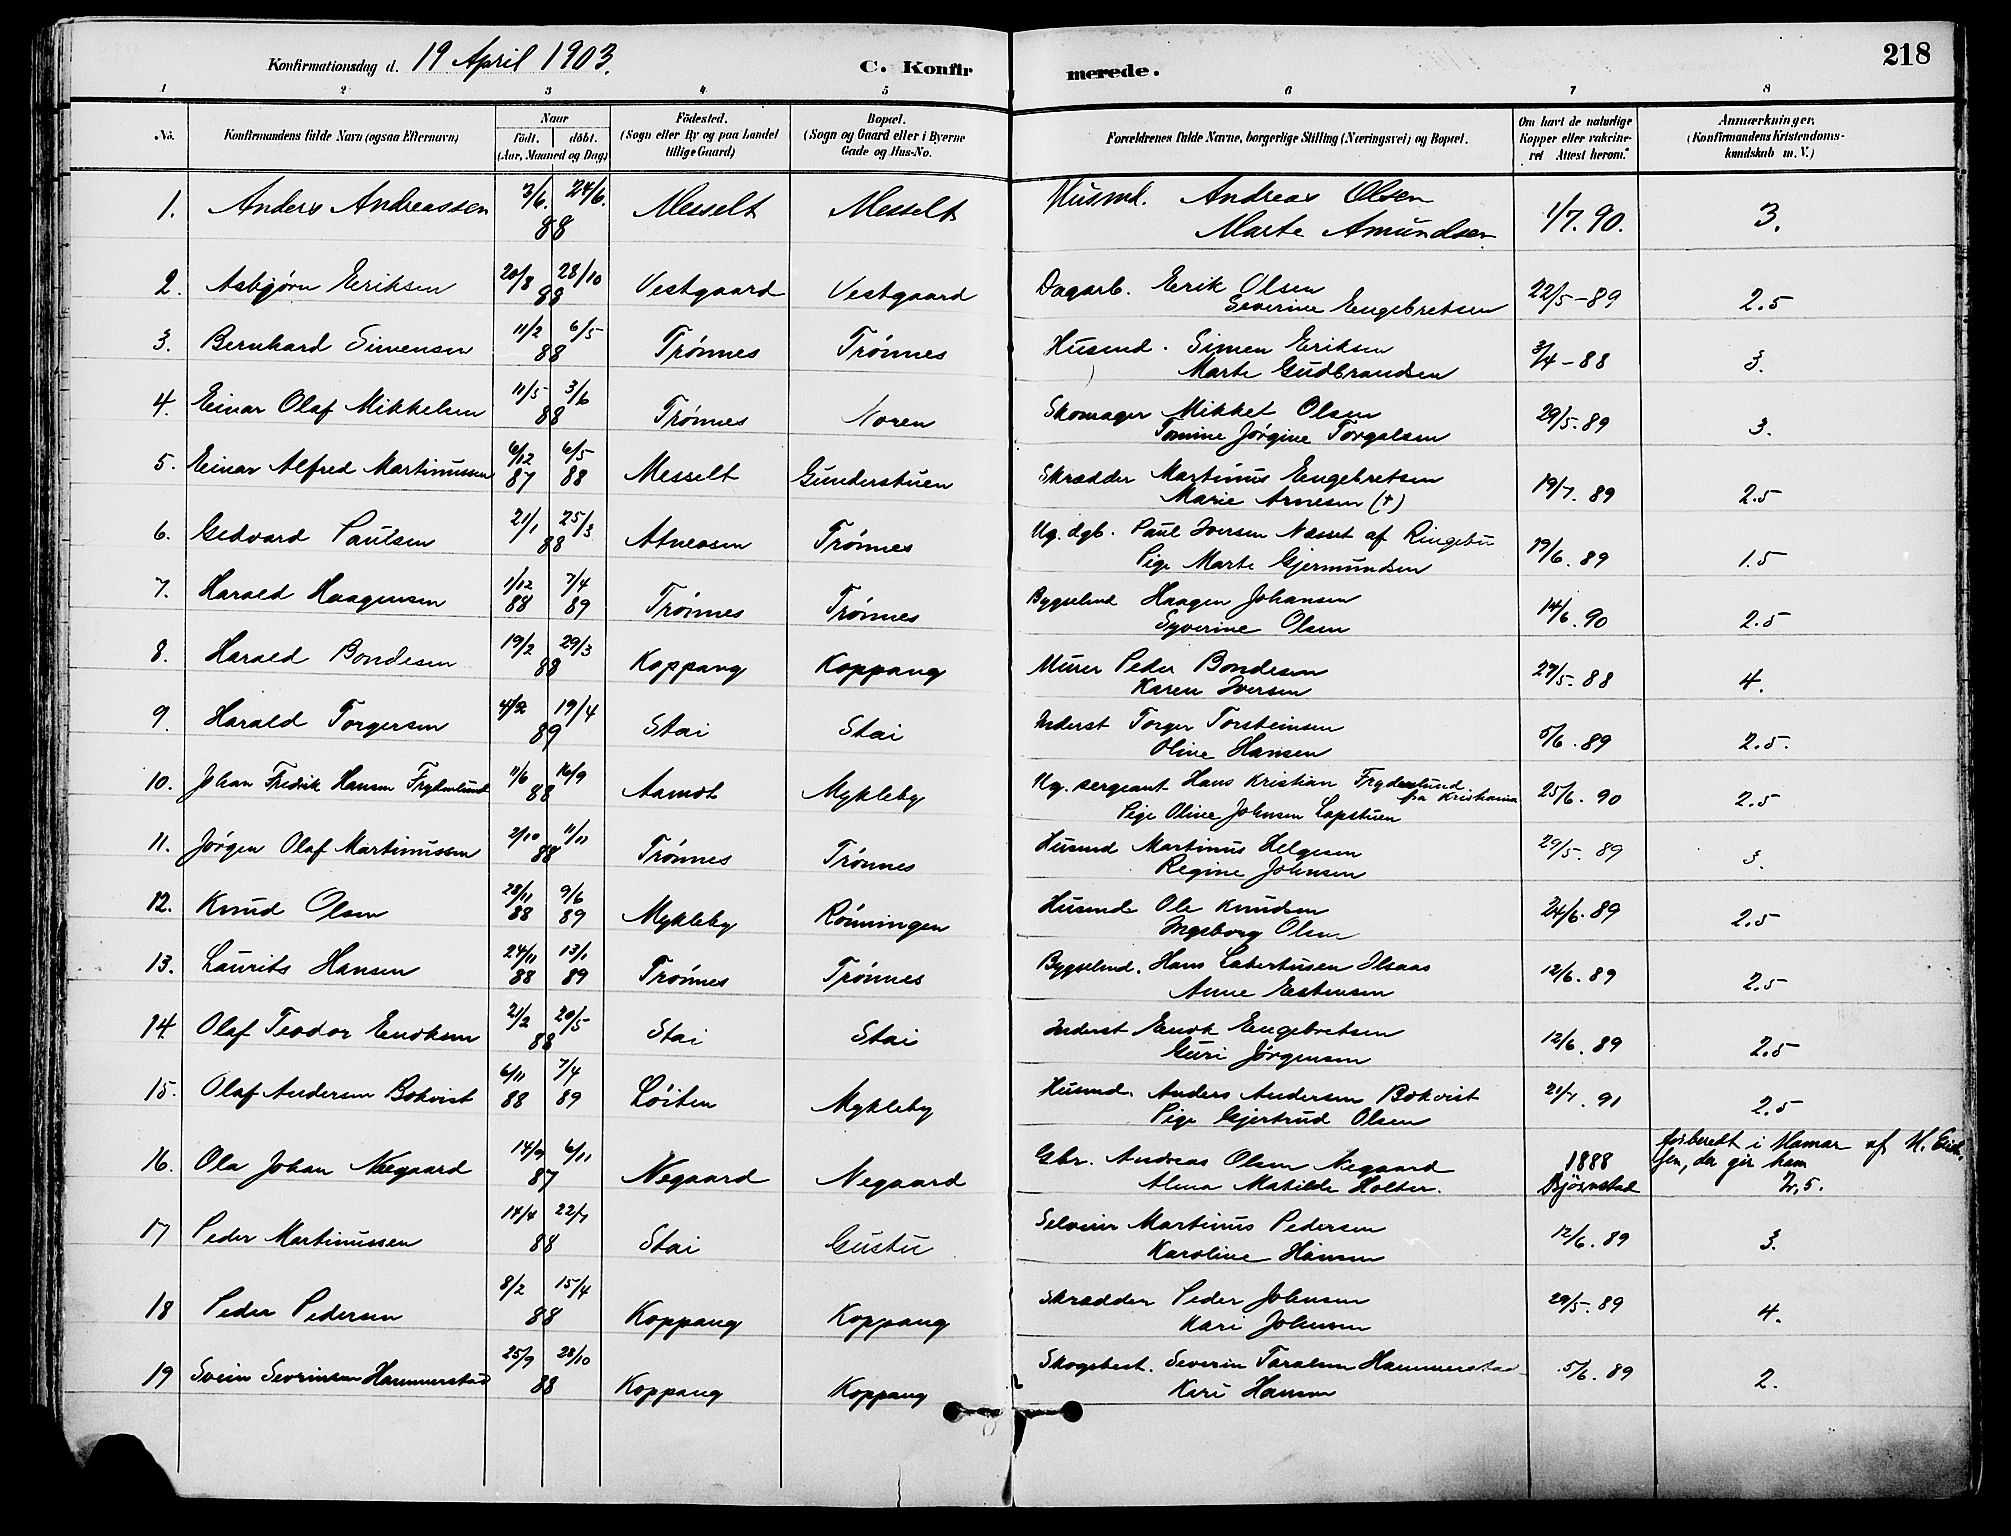 Konfirmationsdag d. 19 April 1903. C. Konfirmerede. 218
1 2 3 4 5 6 7 8
No. Konfirmandens fulde Navn (ogsaa Efternavn) Naar født. døbt. (Aar, Maaned og Dag) Fødested. (Sogn eller By og paa Landet tillige Gaard) Bopæl. (Sogn og Gaard eller i Byerne Gade og Hus-No. Forældrenes fulde Navne, borgerlige Stilling (Næringsvei) og Bopæl. Om havt de naturlige Kopper eller vakcineret Attest herom. Anmærkninger. (Konfirmandens Kristendomskundskab m. V.)
1. Anders Andreassen 3/6. 24/6. 88 Messelt Messelt Husmd. Andreas Olsen 1/7. 90. 3.
Marte Amundsen
2. Asbjørn Eriksen 20/8 28/10 88 Vestgaard Vestgaard Dagarb. Erik Olsen 22/5-89 2.5
Severine Engebretsen
3. Bernhard Simensen 11/2 6/5 88 Trønnes Trønnes Husmd. Simen Eriksen 3/4-88 3.
Marte Gudbrandsen
4. Einar Olaf Mikkelsen 11/5 3/6 88 Trønnes Noren Skomager Mikkel Olsen 29/5.89 3.
Tomine Jørgine Torgalsen
5. Einar Alfred Martinussen 6/12 87 6/5 88 Messelt Gunderstuen Skrædder Martinus Engebretsen 19/7. 89 2.5
Marie Arnesen (†)
6. Gedvard Paulsen 21/1 25/3 88 Atneosen Trønnes Ug. dgb. Paul Iversen Næsset af Ringebu 19/6. 89 1.5
Pige Marte Gjermundsen
7. Harald Haagensen 1/12 88 7/4 89 Trønnes Trønnes Bygselmd Haagen Johansen 14/6. 90 2.5
Syverine Olsen
8. Harald Bondesen 19/2 29/3 88 Koppang Koppang Murer Peder Bondesen 27/5. 88 4.
Karen Iversen
9. Harald Torgersen 4/2 19/4 89 Stai Stai Inderst Torger Torsteinsen 5/6. 89 2.5.
Oline Hansen
10. Johan Fredrik Hansen Frydenlund 11/6 16/9 88 Aamot Mykleby Ug. sergeant Hans Kristian Frydenlund fra Kristiania 25/6. 90 2.5
Pige Oline Johnsen Lapstuen
11. Jørgen Olaf Martinussen 2/10 11/11 88 Trønnes Trønnes Husmd Martinus Helgesen 29/5. 89 3.
Regine Johnsen
12. Knud Olsen 28/11 88 9/6 89 Mykleby Rønningen Husmd. Ole Knudsen 24/6.89 2.5
Ingeborg Olsen
13. Laurits Hansen 24/11 88 13/1 89 Trønnes Trønnes Bygselmd. Hans 12/6. 89 2.5
Anne Estensen
14. Olaf Teodor Enoksen 21/2 20/5 88 Stai Stai Inderst Enok Engebretsen 12/6. 89 2.5
Guri Jørgensen
15. Olaf Andersen Bokvist 6/11 88 7/4 89 Løiten Mykleby Husmd. Anders Andersen Bokvist 21/7. 91 2.5
Pige Gjertrud Olsen
16. Ola Johan Negaard 14/9 6/11 87 Negaard Negaard Gbr. Andreas Olsen Negaard 1888 forberedt i Hamar af H.
Alma Matilde Holter. der gir ham 2,5.
17 Peder Martinussen 14/4 22/7 88 Stai Gustu Selveier Martinus Pedersen 12/6. 89 3.
Karoline Hansen
18 Peder Pedersen 8/2 15/4 88 Koppang Koppang Skrædder Peder Johnsen 29/5. 89 4.
Kari Johnsen
19 Svein Sevrinsen Hammerstad 25/9 28/10 88 Koppang Koppang Skogsbest. Severin Taralsen Hammerstad 5/6. 89 2.
Kari Hansen